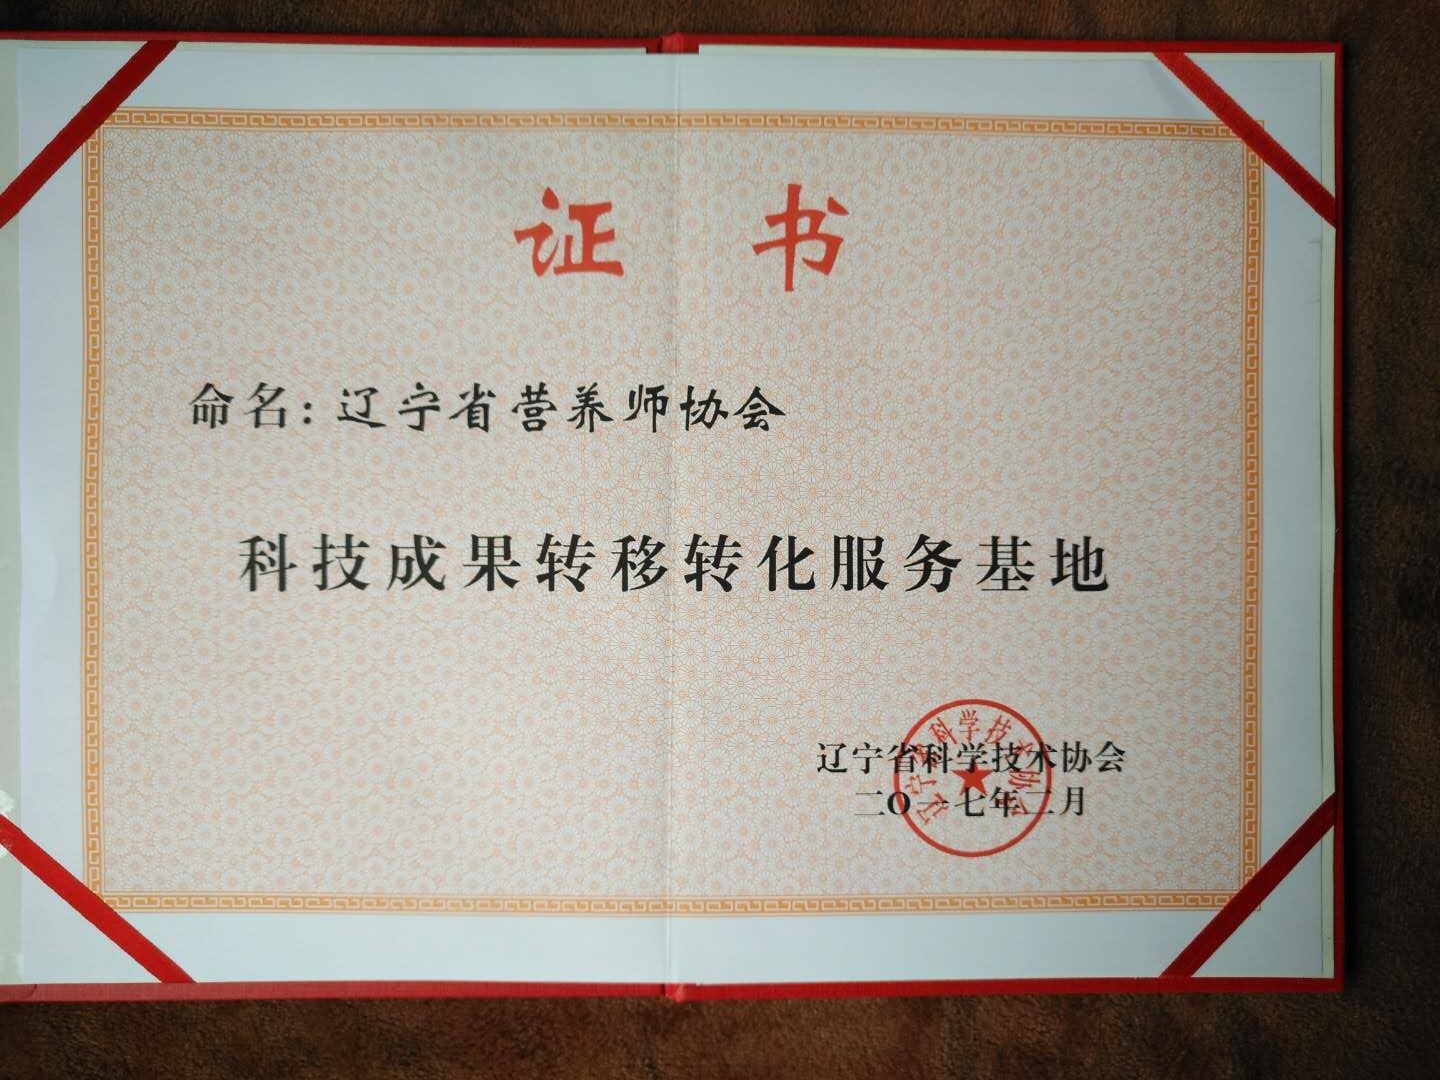 证书
命名:辽宁省营养师协会
科技成果转移转化服务基地
辽宁省科学技术协会
二〇一七年二月
辽宁省科学技术协会